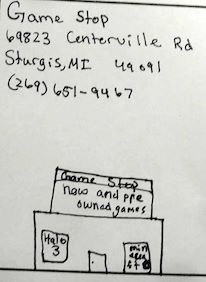 Game Stop
69823 Centerville Rd
Sturgis, MI 49091
(269) 651-9467
Game Stop
new and pre
owned games
Halo
3